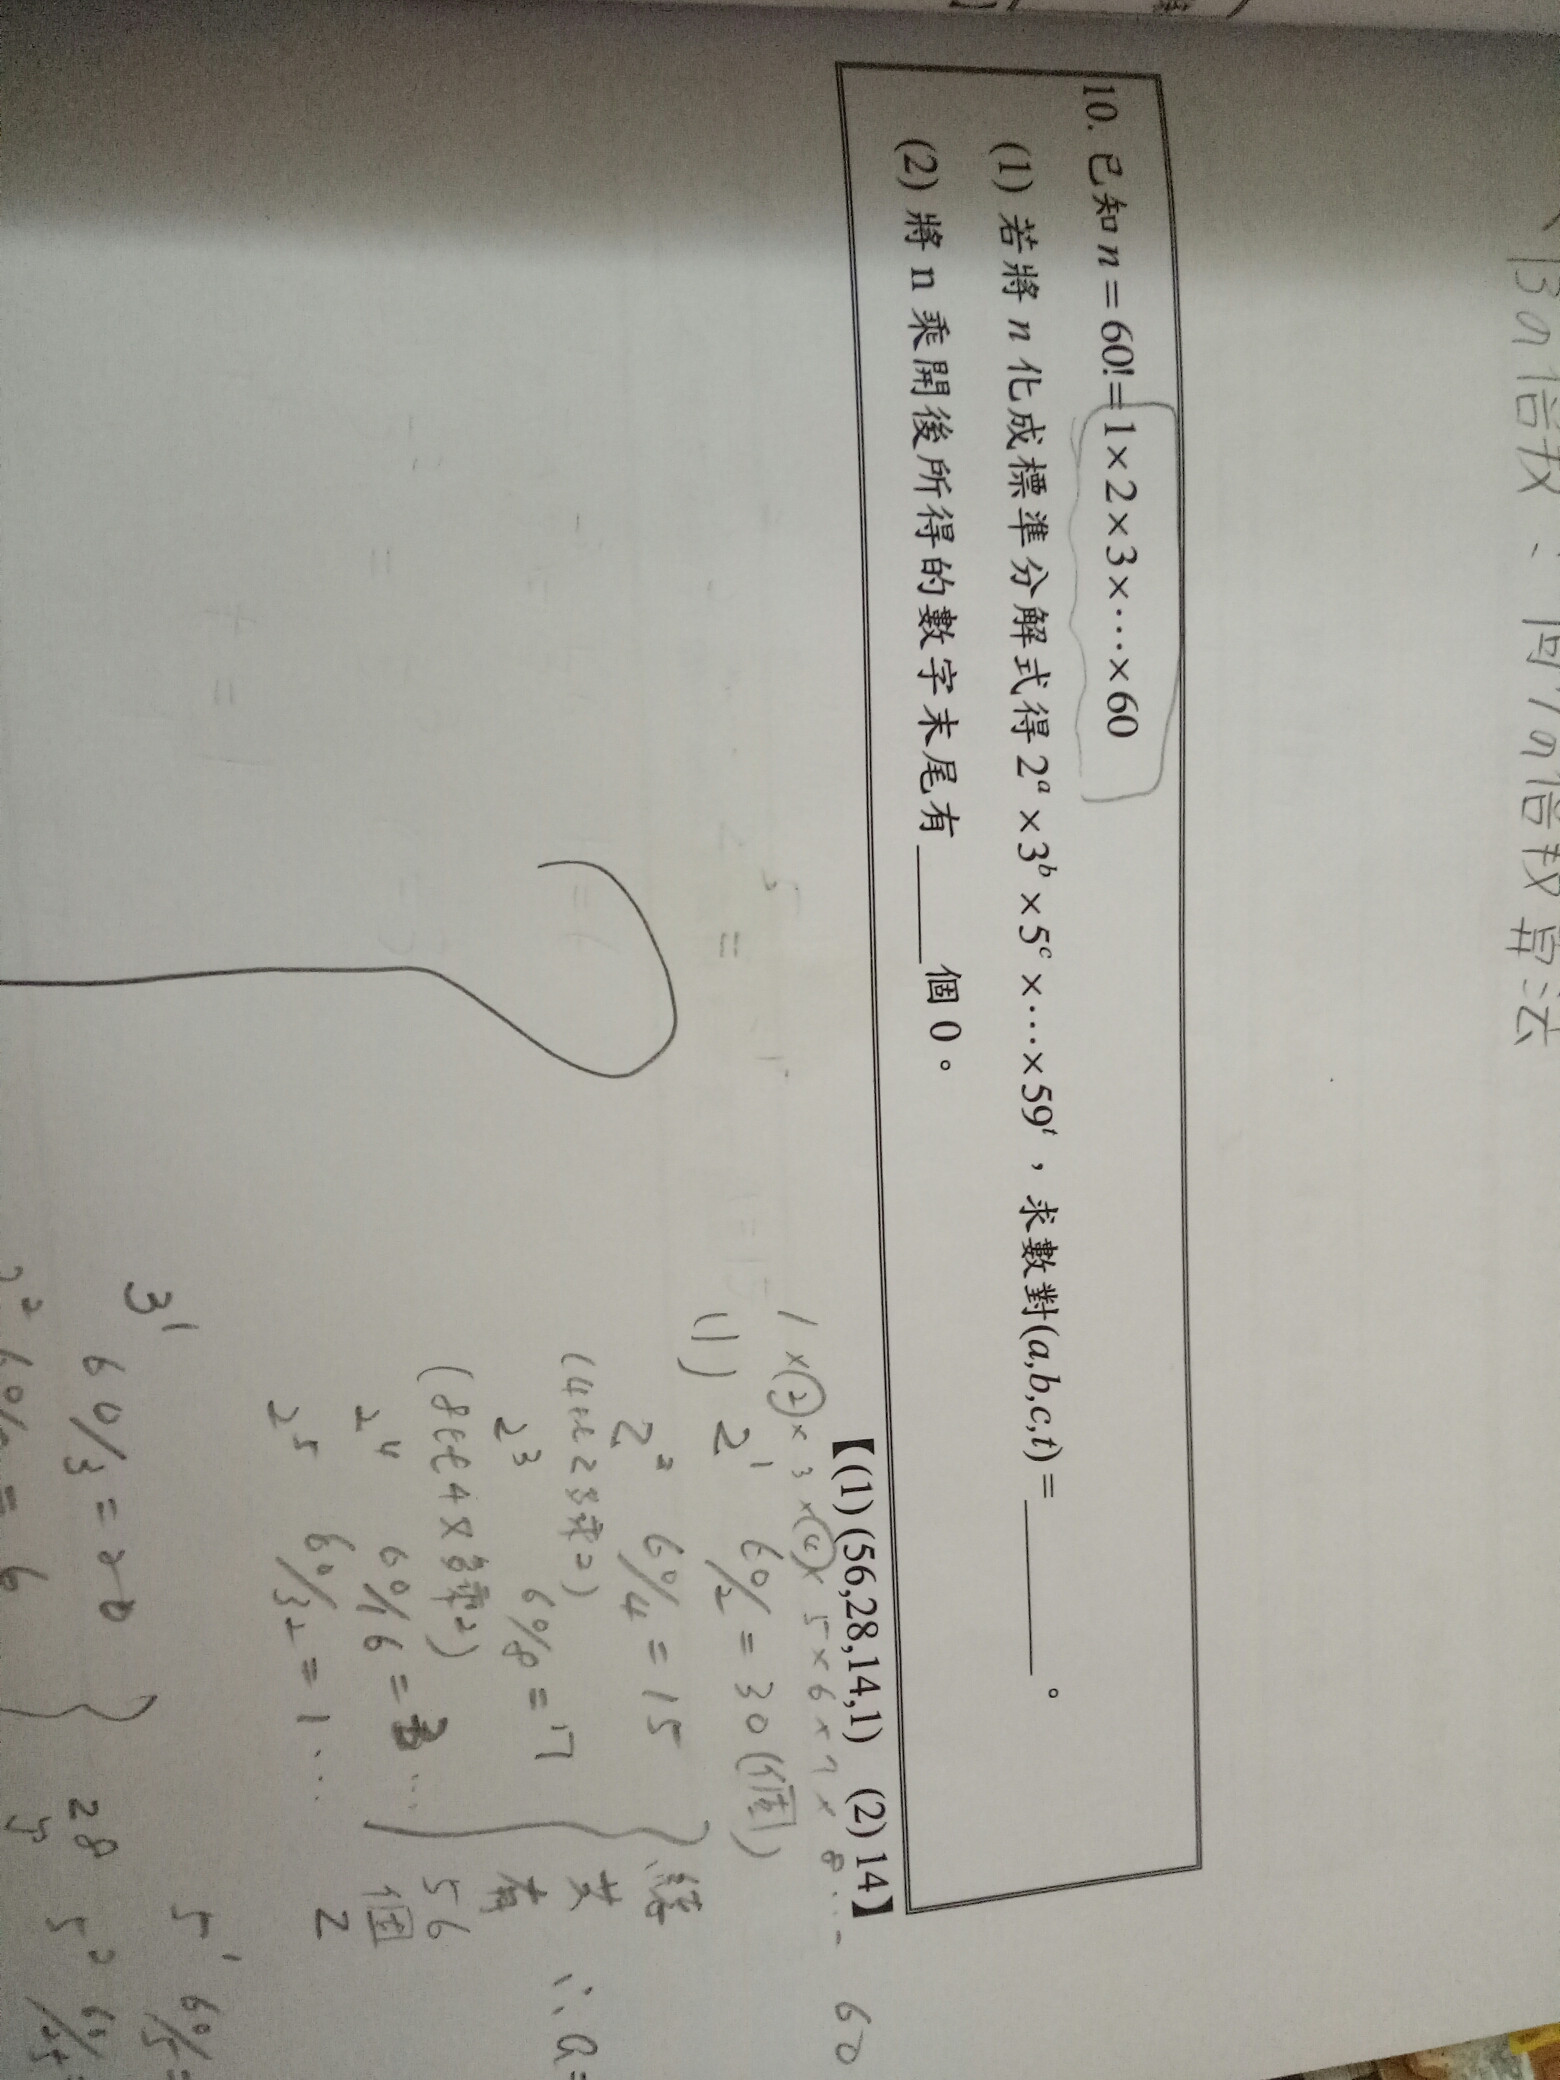 13的倍數:同7的倍數算法
10. 已知 n = 60! = 1×2×3×⋯×60
(1) 若將 n 化成標準分解式得 2ᵃ×3ᵇ×5ᶜ×⋯×59ᵗ,求數對(a,b,c,t) = ______。
(2) 將 n 乘開後所得的數字末尾有____個 0。
【(1) (56,28,14,1) (2) 14】
1×2×3×4×5×6×7×8... 60
(1) 2¹ 60/2 = 30(個)
2² 60/4 = 15
(4比2多乘2)
2³ 60/8 = 7
(8比4又多乘2)
2⁴ 60/16 = 3...
2⁵ 60/32 = 1...
總共有56個2
∴a=
3¹ 60/3 = 20
= 6
28
5¹ 60/5=
5² 60/25=